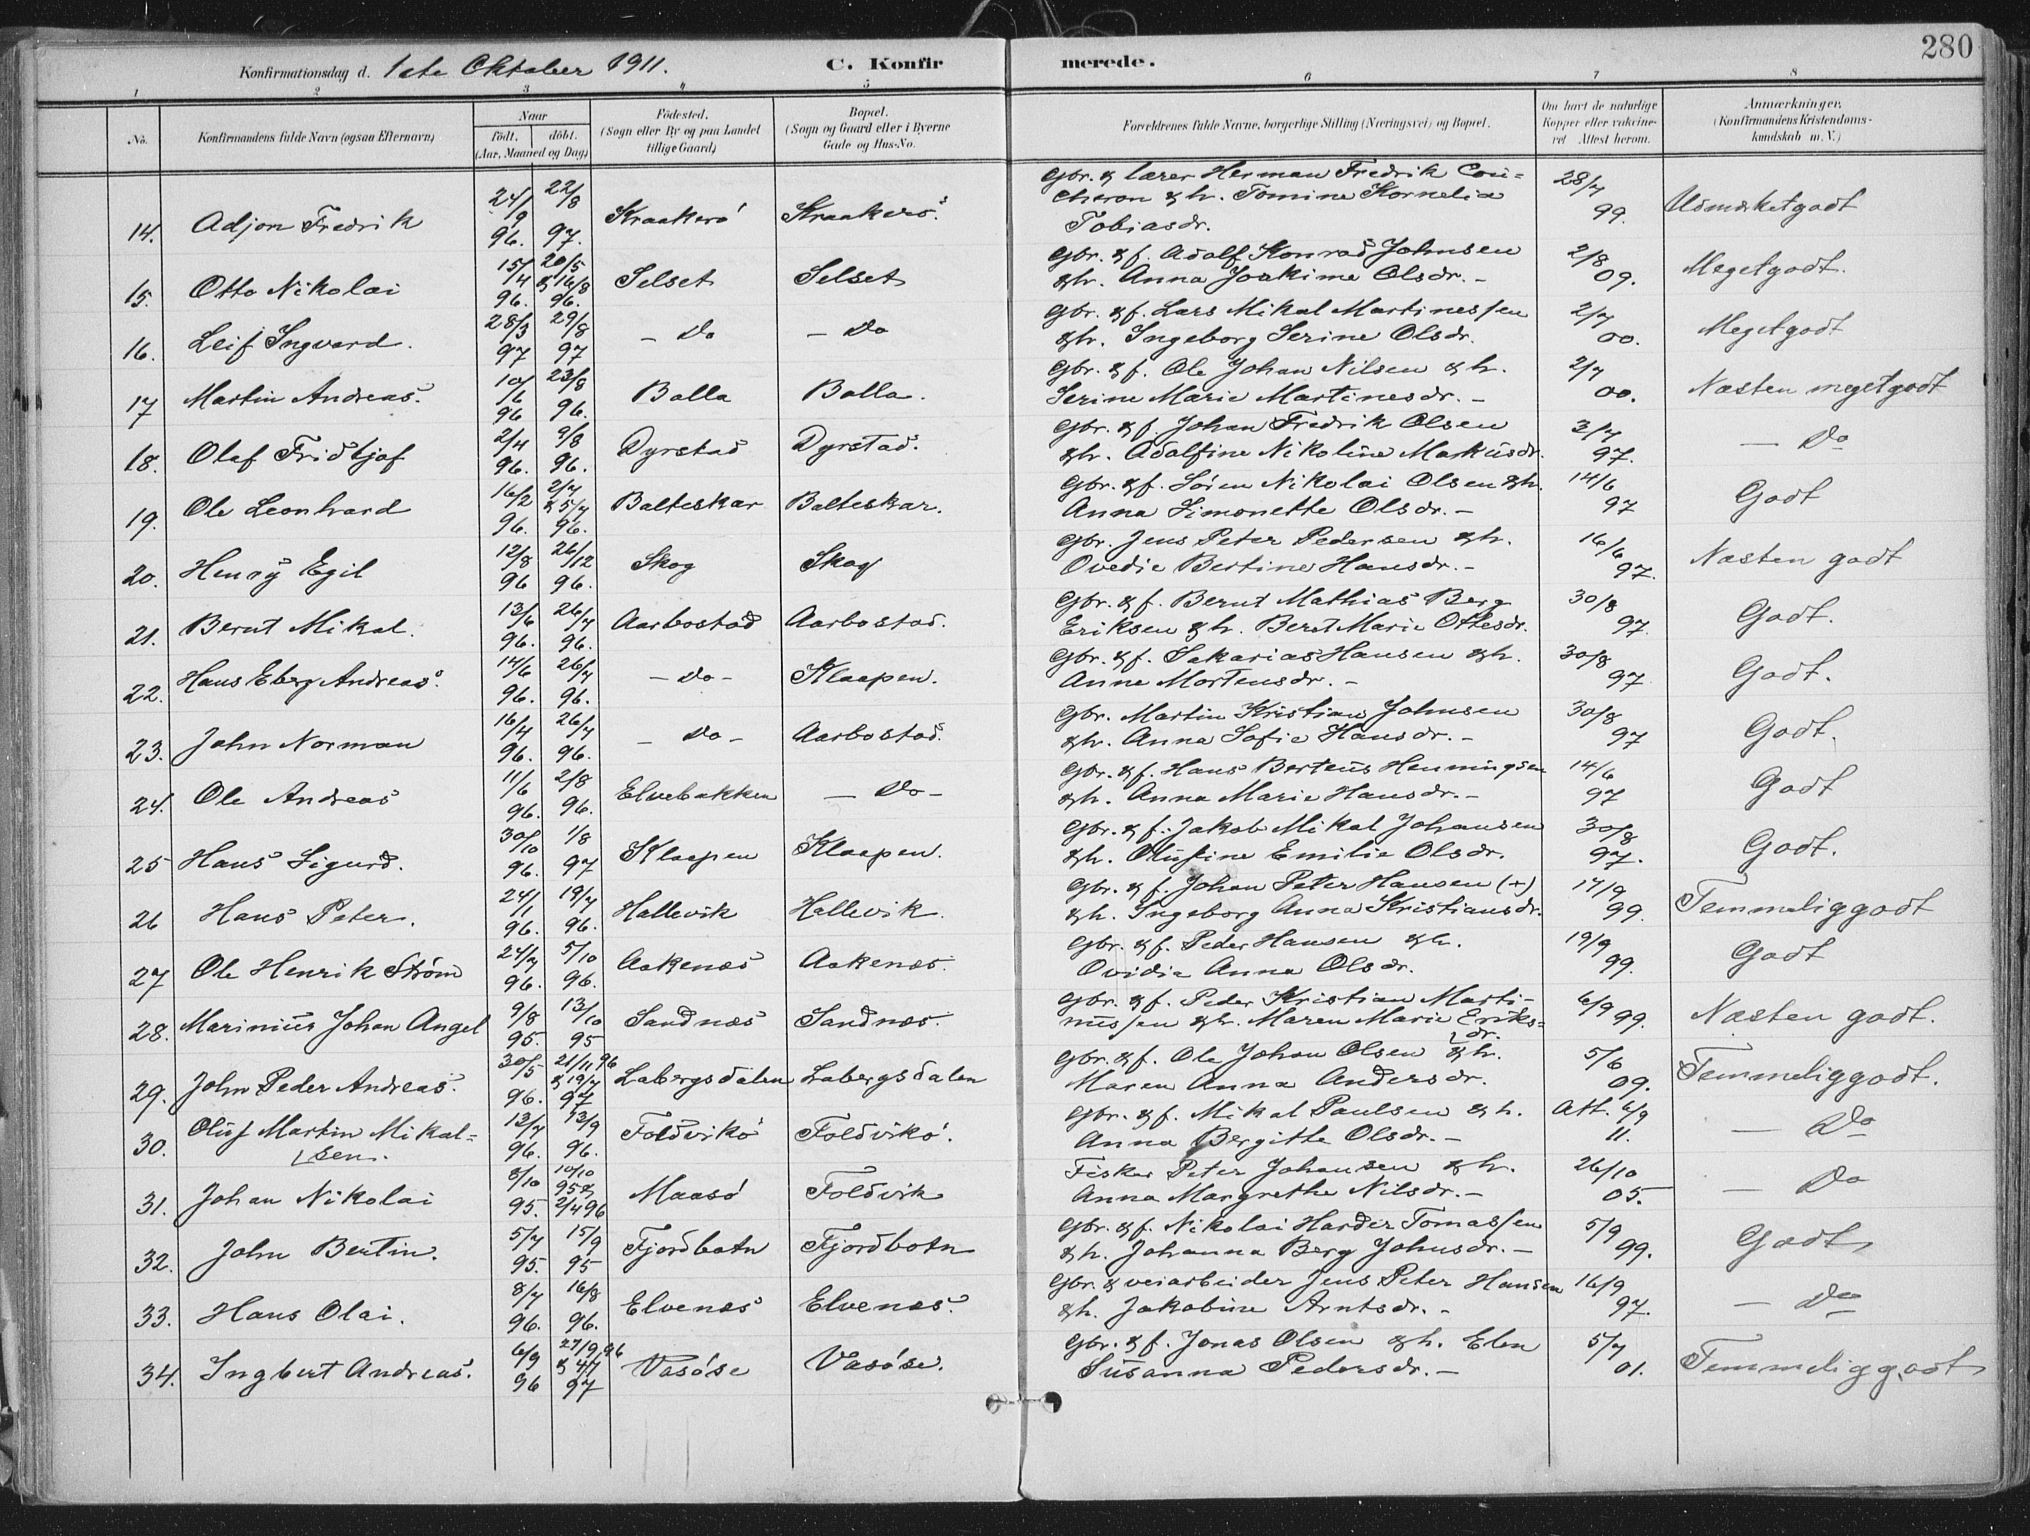 280
Konfirmationsdag d. 1ste Oktober 1911. C. Konfir merede.
1 2 3 4 5 6 7 8
No. Konfirmandens fulde Navn (ogsaa Efternavn) Naar født. døbt. (Aar, Maaned og Dag) Fødested. (Sogn eller By og paa Landet tillige Gaard) Bopæl. (Sogn og Gaard eller i Byerne Gade og Hus-No. Forældrenes fulde Navne, borgerlige Stilling (Næringsvei) og Bopæl. Om havt de naturlige Kopper eller vakcineret Attest herom. Anmærkninger. (Konfirmandens Kristendomskundskab m. V.)
14. Adjon Fredrik 24/9 96. 22/8 97. Kraakerø Kraakerø. Gbr. & lærer Herman Fredrik Coucheron & h. Tomine Kornelia Tobiasdr. 28/7 99. Udmerketgodt
15. Otto Nikolai 15/14 96. 20/5 & 16/8 96. Selset Selset Gbr. & f. Adolf Konrad Johnsen & h. Anna Joakime Olsdr. - 2/8 09. Megetgodt.
16. Leif Ingvard. 28/3 97 29/8 97 - Do - Do Gbr. & f. Lars Mikal Martinessen & h. Ingeborg Serine Olsdr. 2/7 00. Megetgodt
17 Martin Andreas. 10/6 96 23/8 96. Bolla Bolla. Gbr. & f. Ole Johan Nilsen & h. Serine Marie Martinesdr. - 2/7 00. Næsten megetgodt
18. Olaf Fridtjof 2/4 96. 9/8 96. Dyrstad Dyrstad. Gbr. & f. Johan Fredrik Olsen & h. Adolfine Nikoline Markusdr. 3/7 97. - Do
19. Ole Leonhard 16/2 96. 2/7 & 5/7 96. Balteskar Balteskar. Gbr. & f. Søren Nikolai Olsen & h. Anna Simonette Olsdr. - 14/6 97 Godt
20. Henry Egil 12/8 96 26/12 96. Skog Skog Gbr. Jens Peter Pedersen & h. Ovedie Bertine Hansdr. - 16/6 97. Næsten godt
21. Bernt Mikal. 13/6 96. 26/7 96. Aarbostad Aarbostad. Gbr. & f. Bernt Mathias Berg Eriksen & h. Berit Marie Ottesdr. 30/8 97. Godt.
22. Hans Eberg Andreas. 14/6 96. 26/7 96. - Do - Klaapen. Gbr. & f. Sakarias Hansen & h. Anne Mortensdr. - 30/8 97. Godt.
23. John Norman 16/4 96. 26/7 96. - Do - Aarbostad. Gbr. Martin Kristian Johnsen & h. Anna Sofie Hansdr. - 30/8 97 Godt.
24. Ole Andreas 11/6 96. 2/8 96. Elvebakken - Do - Gbr. & f. Hans Berteus Henningsen & h. Anna Marie Hansdr. - 14/6 97 Godt
25 Hans Sigurd. 30/10 96. 1/8 97 Klaapen Klaapen. Gbr. & f. Jakob Mikal Johansen & h. Olufine Emilie Olsdr. 30/8 97. Godt.
26 Hans Peter. 24/1 96. 19/7 96. Hallevik Hallevik. Gbr. & f. Johan Peter Hansen (+) & h. Ingeborg Anna Kristiansdr. 17/9 99. Temmeliggodt
27 Ole Henrik Strøm 24/7 96. 5/10 96. Aakenæs Aakenæs. Gbr. & f. Peder Hansen & h. Ovidia Anna Olsdr. 19/9 99. Godt
28. Marinius Johan Angel 9/8 95. 13/10 95 Sandnæs Sandnæs. Gbr. & f. Peder Kristian Martinussen & h. Maren Marie Eriksdr. 6/9 99. Næsten godt.
29. John Peder Andreas. 30/5 96. 21/11 96 & 19/7 97 Labergsdalen Labergsdalen Gbr. & f. Ole Johan Olsen & h. Maren Anna Andersdr. 5/6 09. Temmeliggodt.
30. Oluf Martin Mikalsen. 13/7 96. 13/9 96. Foldvikø Foldvikø. Gbr. & f. Mikal Paulsen & h. Anna Bergitte Olsdr. - Att. 6/9 11. - Do
31. Johan Nikolai 8/10 95. 10/10 95 & 2/4 96 Maasø Foldvik Fisker Peter Johansen & h. Anna Margrethe Nilsdr. - 26/10 05. - Do
32. John Bertin. 5/7 95. 15/9 95 Fjordbotn Fjordbotn Gbr. & f. Nikolai Harder Tomassen & h. Johanna Berg Johnsdr. - 5/9 99. Godt
33. Hans Olai. 8/7 96. 16/8 96. Elvenæs Elvenæs. Gbr. & veiarbeider Jens Peter Hansen & h. Jakobine Arntsdr. - 16/9 97. - Do
34. Ingbert Andreas. 6/9 96 27/9 96 & 4/7 97 Vasøse Vasøse. Gbr. & f. Jonas Olsen & h. Elen Susanna Pedersdr. - 5/7 01. Temmeliggodt